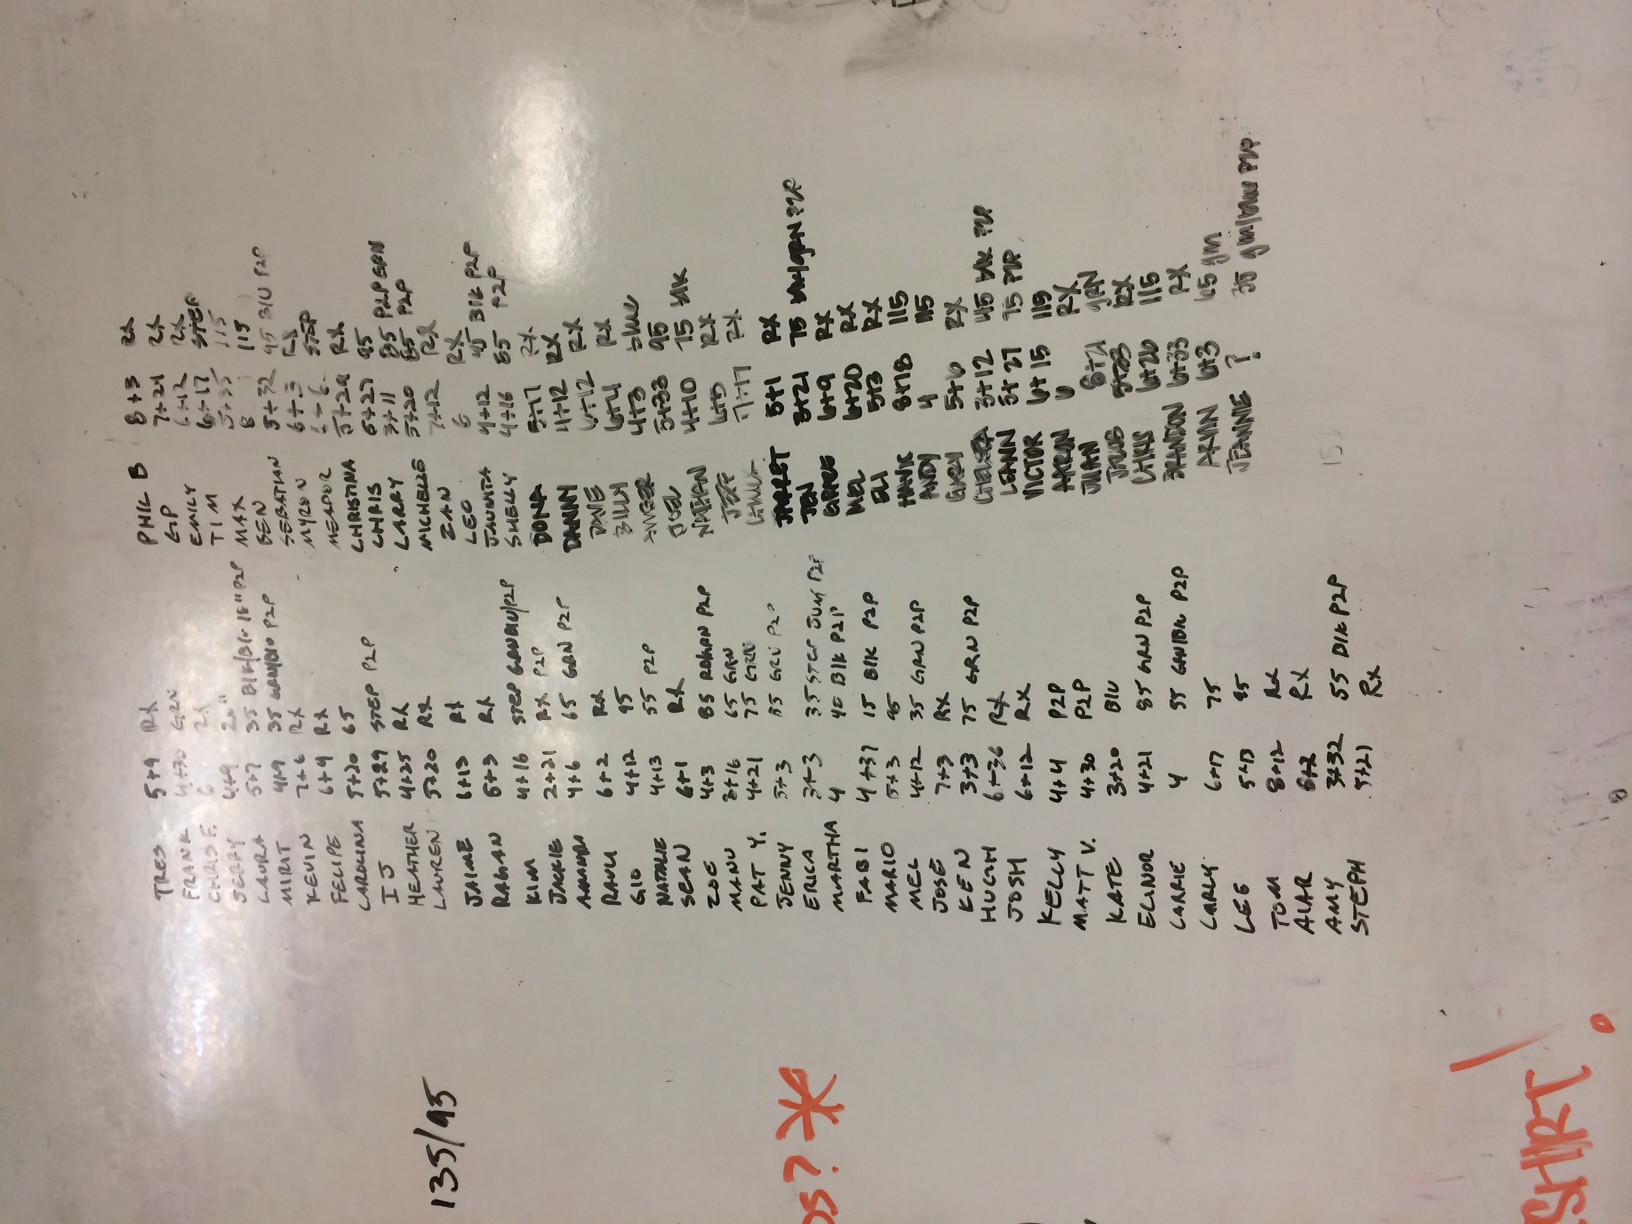 135/95
OS? *
SHIRT!
TRES 5+9 RX
FRANK 4+30 GRN
CHRIS F. 6
JERRY 4+9 20"
LAURA 5+7 35 BLK/BLK 15" P2P
MIRIT 4+9 35 GRN/BLU P2P
KEVIN 7+6 RX
FELIPE 6+9 RX
CAROLINA 5+20 65
IJ 5+29 STEP P2P
HEATHER 4+25 RX
LAUREN 5+20 RX
JAIME 6+13 RX
RAGAN 5+3 RX
KIM 4+16 STEP GRN/BLU/P2P
JACKIE 2+21 RX P2P
4+6 65 GRN P2P
RAUL 6+2 RX
GIO 4+12 95
NATALIE 4+13 55 P2P
SEAN 6+1 RX
ZOE 4+3 85 P2P
MANU 3+16 65 GRN
PAT Y. 4+21 75 GRN
JENNY 5+3 55 GRN P2P
ERICA 3+3 35 STEP JUM P2P
MARTHA 4 40 BLK P2P
FABI 4+37 15 BLK P2P
MARIO 5+3 95
MEL 4+12 35 GRN P2P
JOSE 7+3 RX
KEN 3+3 75 GRN P2P
HUGH 6+36 RX
JOSH 6+12 RX
KELLY 4+4 P2P
MATT V. 4+30 P2P
KATE 3+20 BLU
ELNOR 4+21 85 GRN P2P
CARRIE 4 55 GRN/BLK P2P
CARLY 6+17 75
LEE 5+13 95
TOM 8+12 RX
6+2 RX
AMY 3+32 55 BLK P2P
STEPH 5+21 RX
PHIL B 8+3 RX
GP 7+21 RX
EMILY 6+12 RX
TIM 6+17 STEP
MAX 115
BEN 8 115
SEBATIAN 5+32 95 BLU P2P
MYRON 6+3 RX
MEADOR STEP
CHRISTINA 5+29 RX
CHRIS 6+27 95
LARRY 3+11 85 P2P GRN
MICHELLE 5+20 65 P2P
ZAN 7+12 RX
LEO 6 RX
JAUNITA 4+12 45 BLK P2P
SHELLY 4+16 55 P2P
DONA 5+17 RX
DANNY 4+12 RX
DAVE RX
BILLY 6+21 RX
4+3 blue
JOEL 5+33 95
NATHAN 4+10 75 blk
JEFF 6+5 RX
7+17 RX
JARRET 5+1 RX
JEN 3+21 75 blk/grn P2P
6+9 RX
MEL 6+20 RX
ELI 5+3 RX
HANK 8+18 115
ANDY 4 115
GARY 5+6 RX
CHELSEA 3+12 45 blk P2P
LEANN 5+27 75 P2P
VICTOR 6+15 115
AARON 6 RX
JUAN 6+21 GRN
5+33 RX
CHRIS 6+26 115
BRANDON 6+33 RX
ARVIN 6+3 65 grn
JEANNIE ? 35 P2P